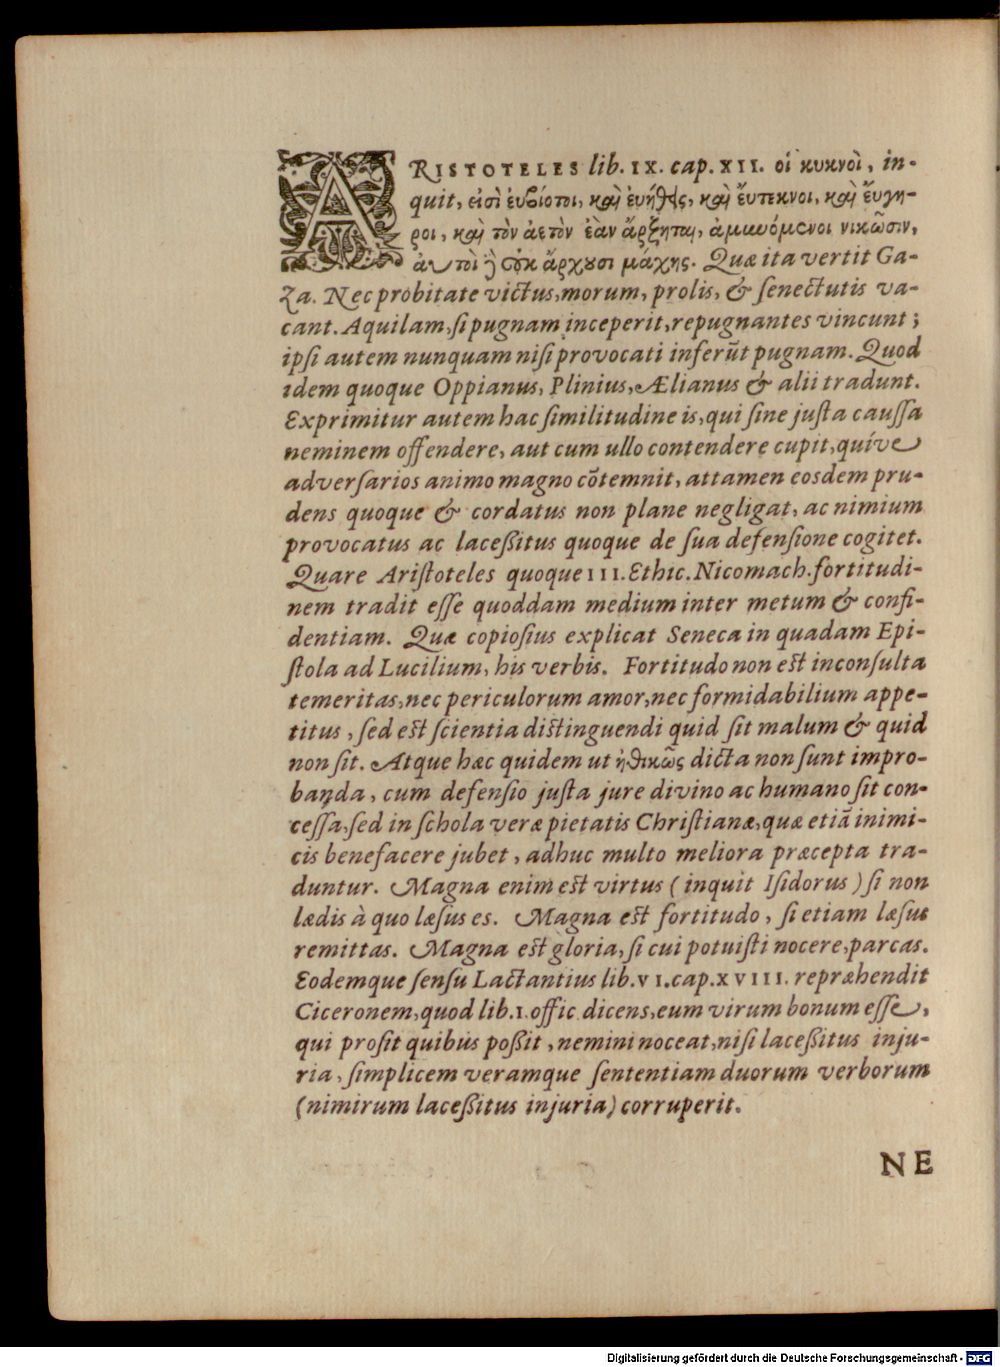 ARISTOTELES lib. IX. cap. XII. οἱ κυκνοὶ, in-
quit, εἰσὶ ἐυβίοτοι, καὶ ἐυήθεις, καὶ ἔυτεκνοι, καὶ ἔυγη-
ροι, καὶ τὸν ἀετὸν ἐὰν ἄρξηται, ἀμυνόμενοι νικῶσιν,
ἀυτοὶ δὲ οὐκ ἄρχουσι μάχης. Quæ ita vertit Ga-
za. Nec probitate victus, morum, prolis, & ſenectutis va-
cant. Aquilam, ſi pugnam inceperit, repugnantes vincunt;
ipſi autem nunquam niſi provocati inferūt pugnam. Quod
idem quoque Oppianus, Plinius, Ælianus & alii tradunt.
Exprimitur autem hac ſimilitudine is, qui ſine juſta cauſſa
neminem offendere, aut cum ullo contendere cupit, quíve
adverſarios animo magno cōtemnit, attamen eosdem pru-
dens quoque & cordatus non plane negligat, ac nimium
provocatus ac laceßitus quoque de ſua defenſione cogitet.
Quare Ariſtoteles quoque III. Ethic. Nicomach. fortitudi-
nem tradit eſſe quoddam medium inter metum & confi-
dentiam. Quæ copioſius explicat Seneca in quadam Epi-
ſtola ad Lucilium, his verbis. Fortitudo non eſt inconſulta
temeritas, nec periculorum amor, nec formidabilium appe-
titus, ſed eſt ſcientia diſtinguendi quid ſit malum & quid
non ſit. Atque hæc quidem ut ἠθικῶς dicta non ſunt impro-
banda, cum defenſio juſta jure divino ac humano ſit con-
ceſſa, ſed in ſchola veræ pietatis Chriſtianæ, quæ etiā inimi-
cis benefacere jubet, adhuc multo meliora præcepta tra-
duntur. Magna enim eſt virtus (inquit Iſidorus) ſi non
lædis à quo læſus es. Magna eſt fortitudo, ſi etiam læſus
remittas. Magna eſt gloria, ſi cui potuiſti nocere, parcas.
Eodemque ſenſu Lactantius lib. VI. cap. XVIII. repræhendit
Ciceronem, quod lib. I. offic. dicens, eum virum bonum eſſe,
qui proſit quibus poßit, nemini noceat, niſi laceßitus inju-
ria, ſimplicem veramque ſententiam duorum verborum
(nimirum laceßitus injuria) corruperit.
NE
Digitalisierung gefördert durch die Deutsche Forschungsgemeinschaft - DFG